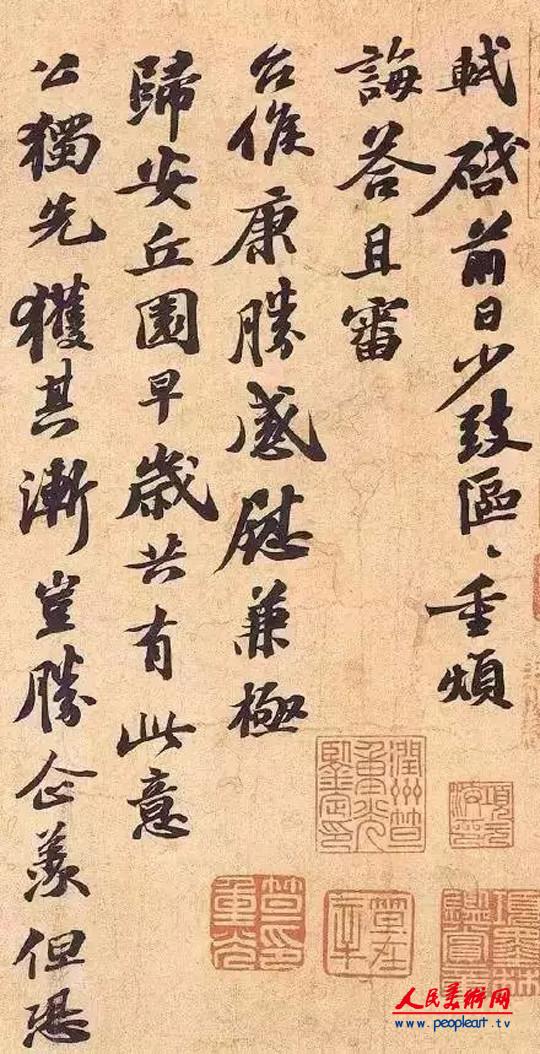 軾啓前日少致區〻重煩
誨荅且審
台候康勝感慰兼極
歸安丘園早歲共有此意
公獨先獲其漸豈勝企羨但恐
潤州笪重光鑒定印
笪印重光
人民美术网
www.peopleart.tv